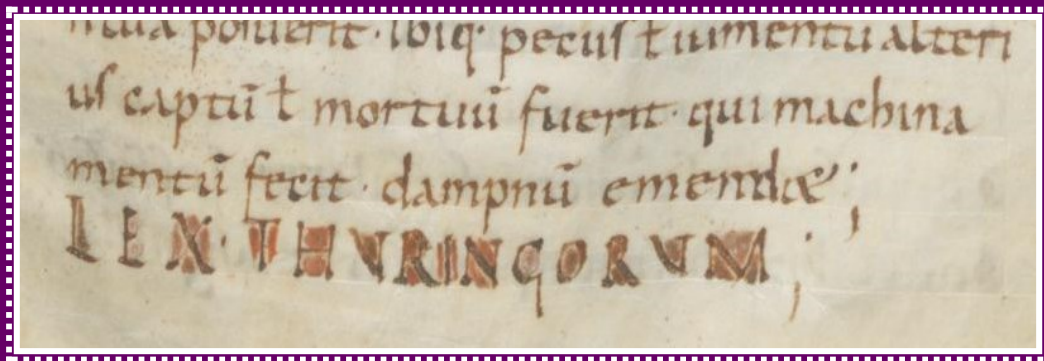 posuerit · ibiq; pecus ł iumentū alteri
us captū ł mortuū fuerit · qui machina
mentū fecit · dampnū emendæ;
LEX · THURINGORUM;